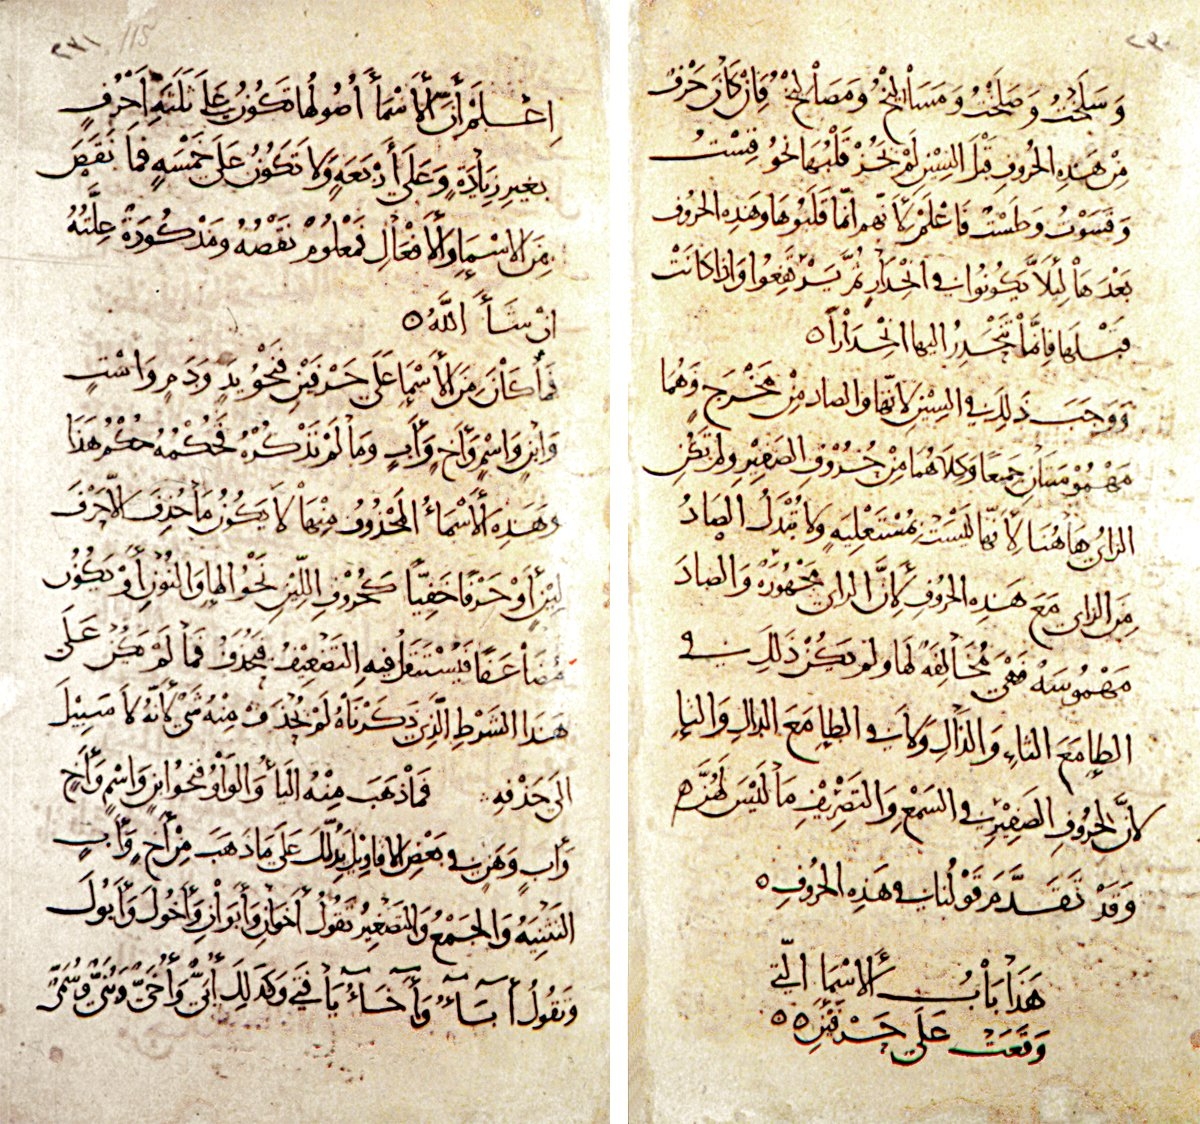 ٢٣٠
وَسَلَخْتُ وَصَلَخْتُ وَمَسَالِيخُ وَمَصَالِيخُ فَإِنْ كَانَ حَرْفٌ
مِنْ هَذِهِ الحُروفِ قَبْلَ السِّيْنِ لَمْ يَجُزْ قَلْبُهَا نَحْوُ قِسْتُ
وَقَسَوْتُ وَطَسْتُ فَاعْلَمْ لأَنَّهُم انَّمَا قَلَبُوهَا وَهَذِهِ الحُروفُ
بَعْدَهَا لِئَلاَّ يَكُونُوا فِي انْحِدَارٍ ثُمَّ يَرْتَفِعُوا وَإِذَا كَانَتْ
قَبْلَهَا فَإِنَّمَا يَنْحَدِرُ اليها انْحِدَاراً ٥
وَوَجَبَ ذَلِكَ فِي السِّيْنِ لأَنَّهَا وَالصَادَ مِنْ مَخْرَجٍ وَهُمَا
مَهْمُوْسَتَانِ جَمِيعًا وَكِلاَهُمَا مِنْ حُرُوْفِ الصَفِيْرِ وَلَمْ تَكُنِ
الزايُ هَاهُنَا لأَنَّهَا لَيْسَتْ بِمُسْتَعْلِيَةٍ وَلاَ تُبْدَلُ الصَادُ
مِنَ الزاي مَعَ هَذِهِ الحُروفِ لأَنَّ الزاي مَجْهُورَةٌ وَالصَادَ
مَهْمُوسَةٌ فَهْيَ مُخَالِفَةٌ لَهَا وَلَمْ يَكُنْ ذَلِكَ فِي
الطاءِ مَعَ التاءِ وَالذَّالِ وَلاَ فِي الطاءِ مَعَ الدالِ وَالتاءِ
لأنَّ لحُروفِ الصَفِيْرِ فِي السَمْعِ وَالتَصْرِيْفِ مَا لَيْسَ لَهُنَّ
وَقَدْ تَقَدَّمَ قَوْلُنَا فِي هَذِهِ الحُرُوفِ ٥
هَذَا بَابُ الأَسْمَاءِ الَّتي
وَقَعَتْ عَلَى حَرْفَيْنِ ٥٥
٢٣١ 115
اِعْلَمْ أَنَّ الأَسْمَاءَ أُصُولُهَا تَكُوْنُ عَلَى ثَلَثَةِ أَحْرُفٍ
بِغَيرِ زِيَادَةٍ وَعَلَى أَرْبَعَةٍ وَلاَ تَكُوْنُ عَلَى خَمْسَةٍ فَمَا نَقَصَ
مِنَ الاسْمَاءِ وَالأَفْعَالِ فَمَعْلُومٌ نَقْصُهُ وَمَذْكُورَةٌ عِلَّتُهُ
انْ شَاءَ اللَّهُ ٥
فَمَا كَانَ مِنَ الأَسْمَاءِ عَلَى حَرْفَيْنِ فَنَحْوُ يَدٍ وَدَمٍ وَاسْتٍ
وَابْنٍ وَاسْمٍ وَأَخٍ وَأَبٍ وَمَا لَمْ نَذْكُرْهُ فَحُكْمُهُ حُكْمُ هَذَا
وَهَذِهِ الأَسْمَاءُ المَحْذُوفُ مِنْهَا لاَ يَكُونُ مَا حُذِفَ الاَّ حَرْفَ
لِيْنٍ أَوْ حَرْفًا خَفِيًّا كَحُرُوْفِ اللِّيْنِ نَحْوُ الهَاءِ وَالنُّوْنِ أَوْ يَكُوْنُ
مُضَاعَفًا فَيُسْتَثْقَلُ فِيهِ التَضْعِيْفُ فَيُحْذَفُ فَمَا لَمْ يَكُنْ عَلَى
هَذَا الشَرْطِ الَّذِي ذَكَرْنَاهُ لَمْ يُحْذَفْ مِنْهُ شَيْءٌ لأَنَّهُ لاَ سَبِيْلَ
الَى حَذْفِهِ فَمَا ذَهَبَ مِنْهُ اليَاءُ وَالوَاوُ فَنَحْوُ ابْنٍ وَاسْمٍ وَأَخٍ
وَأَبٍ وَهَنٍ فِي بَعْضِ الاقَاوِيْلِ يَدُلُّكَ عَلَى مَا ذَهَبَ مِنْ أَخٍ وَأَبٍ
التَثْنِيَةُ وَالجَمْعُ وَالتَصْغِيْرُ تَقُوْلُ أَخَوَانِ وَأَبَوَانِ وَأَخُوْكَ وَأَبُوْكَ
وَتَقُوْلُ أَبَآءٌ وَأَخَآءٌ يَا فَتًى وَكَذَلِكَ أُبَيٌّ وَأُخَيٌّ وَبُنَيٌّ وَسُمَيٌّ